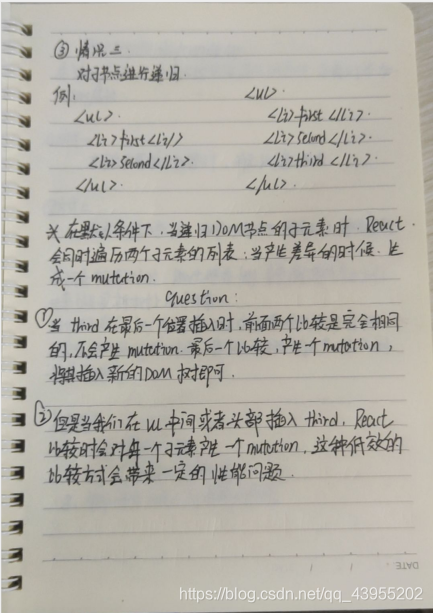 ③ 情况三.
对子节点进行递归.
例:
<ul>. <ul>.
<li>first<li/> <li>first</li>.
<li>second</li>. <li>second</li>.
</ul>. <li>third</li>.
</ul>.
※ 在默认条件下,当递归DOM节点的子元素时. React
会同时遍历两个子元素的列表;当产生差异的时候.生
成一个mutution.
question:
① 当 third 在最后一个位置插入时,前面两个比较是完全相同
的,不会产生 mutution. 最后一个比较,产生一个mutation,
将其插入新的DOM树即可.
② 但是当我们在 ul 中间或者头部插入 third, React
比较时会对每一个子元素产生一个mutation, 这种低效的
比较方式会带来一定的性能问题.
DATE
https://blog.csdn.net/qq_43955202